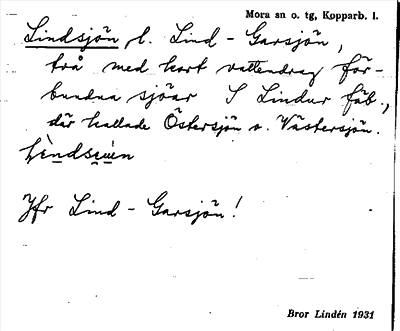 Mora sn o. tg, Kopparb. l.
Lindsjön l. Lind-Garsjön,
två med kort vattendrag för-
bundna sjöar S Lindur fäb.,
där kallade Östersjön o. Västersjön.
Jfr Lind-Garsjön!
Bror Lindén 1931